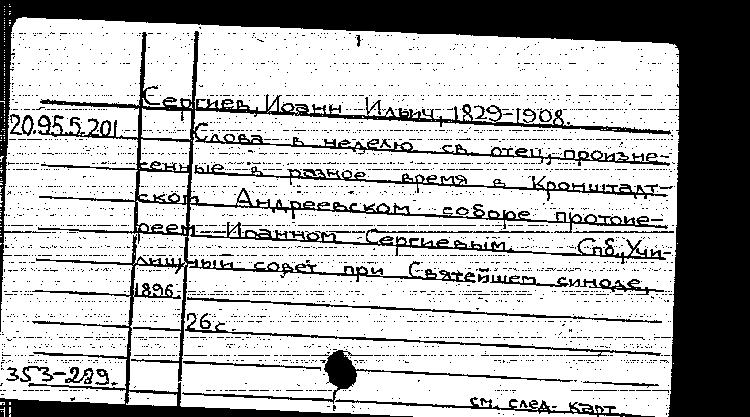 Сергиев, Иоанн Ильич, 1829-1908.
20.95.5.201. Слова в неделю св. отец, произне-
сенные в разное время в Кронштадт-
ском Андреевском соборе протоие-
реем Иоанном Сергиевым. Спб., Учи-
лищный совет при Святейшем синоде,
1896.
26 с.
353-289.
см. след. карт.